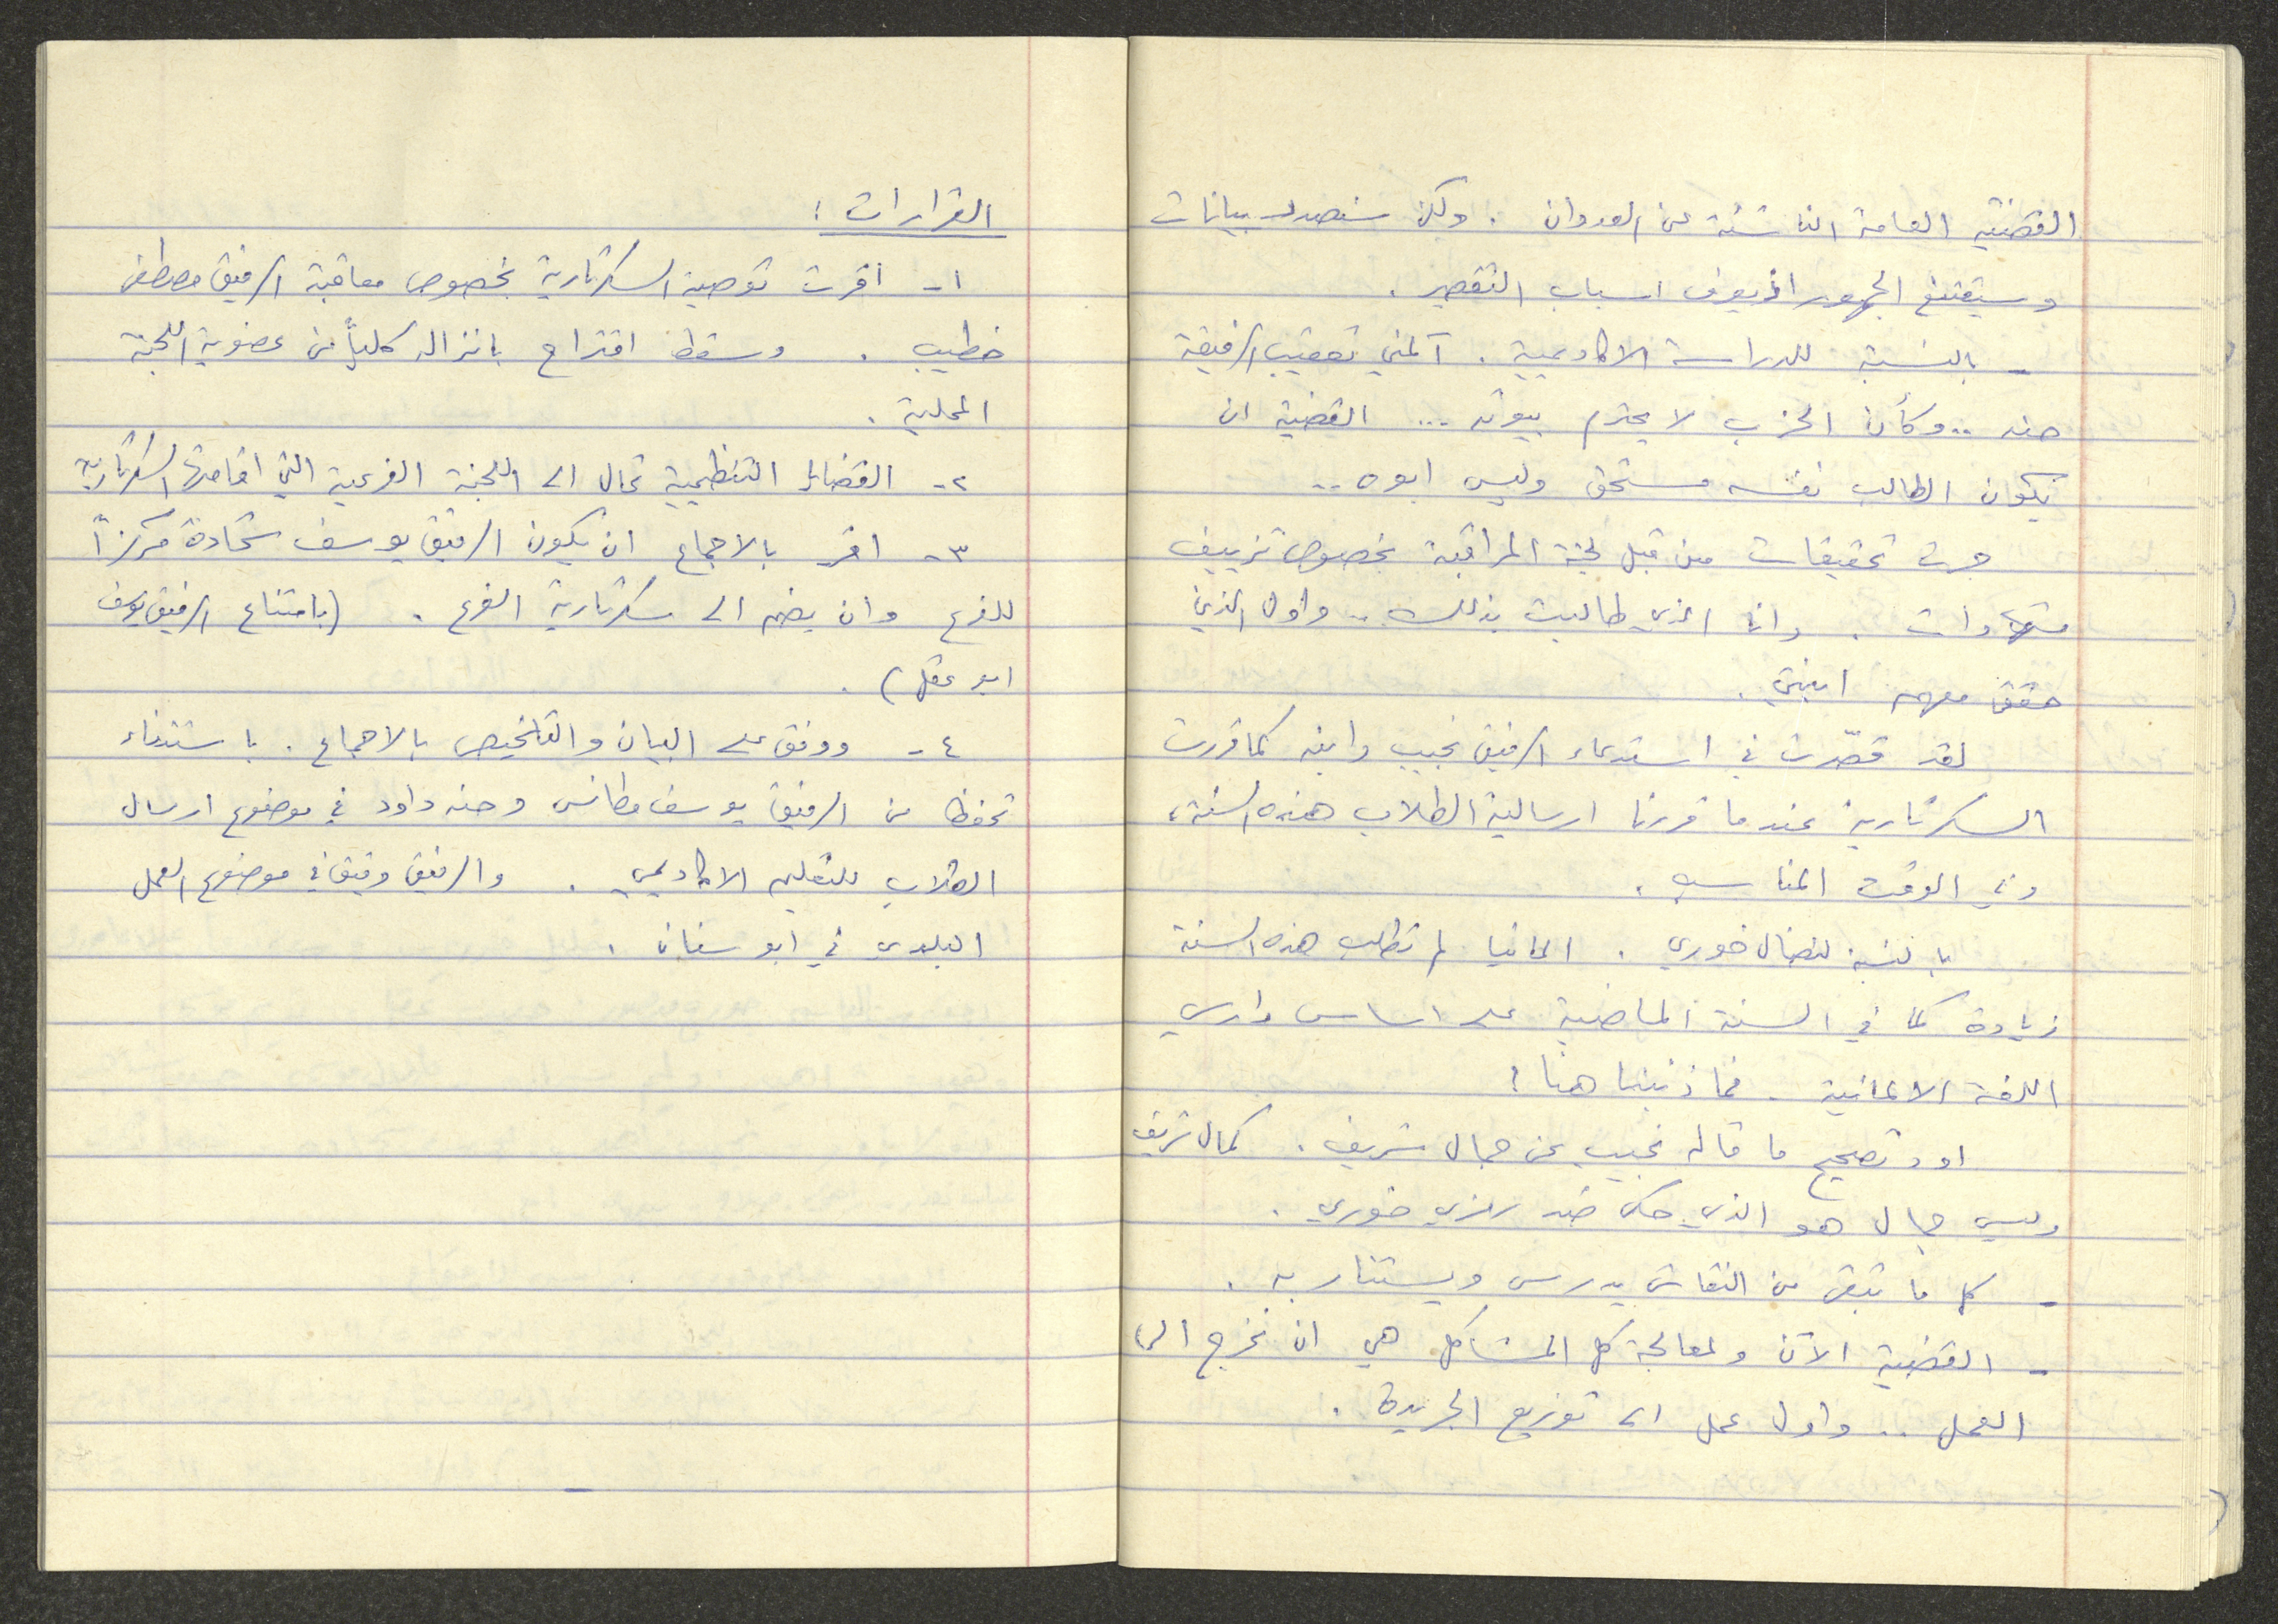 القضية العامة الناشئة عن العدوان . ولكن سنصدر بيانات
وسيقتنع الجمهور اذ يعرف اسباب التقصير .
- بالنسبة للدراسة الاكاديمية . آلمني تعقيب الرفيقة
حنه .. وكأن الحزب لا يحترم بيوته ... القضية ان
يكون الطالب نفسه مستحق وليس ابوه ..
جرت تحقيقات من قبل لجنة المراقبة بخصوص تزييف
شهادات . وانا الذي طالبت بذلك .. واول الذين
حقق معهم ابنتي .
لقد قصّرت في استدعاء الرفيق نجيب وابنه كما قررت
السكرتارية عندما قررنا ارسالية الطلاب هذه السنة ،
وفي الوقت المناسب .
بالنسبة لنضال خوري . المانيا لم تطلب هذه السنة
زيادة كما في السنة الماضية على اساس دارسي
اللغة الالمانية . فما ذنبنا هنا !
اود تصحيح ما قاله نجيب عن جمال شريف . كمال شريف
وليس جمال هو الذي حكى ضد رمزي خوري .
- كل ما تبقى من النقاش يدرس ويستنار به .
- القضية الآن ولمعالجة كل المشاكل هي ان نخرج الى
العمل .. واول عمل الى توزيع الجريدة .
القرارات :
١- اقرت توصية السكرتارية بخصوص معاقبة الرفيق مصطفى
خطيب . وسقط اقتراح بانزاله كلياً من عضوية اللجنة
المحلية .
٢- القضايا التنظيمية تحال الى اللجنة الفرعية التي اقامتها السكرتارية
٣- اقر بالاجماع ان يكون الرفيق يوسف شحادة مركزاً
للفرع وان يضم الى سكرتارية الفرع . (بامتناع الرفيق يوسف
ابو عقل) .
٤- ووفق على البيان والتلخيص بالاجماع . باستثناء
تحفظ من الرفيق يوسف مطانس وحنه داود في موضوع ارسال
الطلاب للتعليم الاكاديمي . والرفيق وفيق في موضوع العمل
البلدي في ابو سنان .